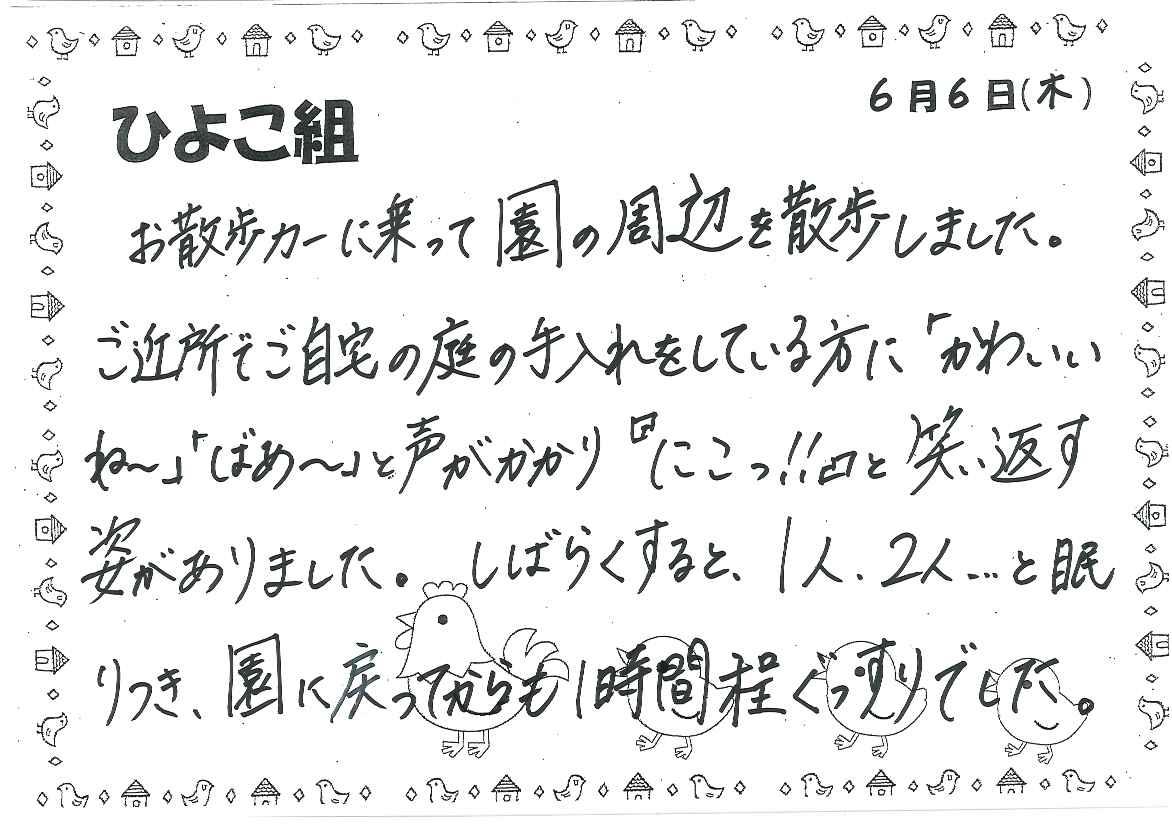 6月6日(木)
ひよこ組
お散歩カーに乗って園の周辺を散歩しました。
ご近所でご自宅の庭の手入れをしている方に「かわいい
ね〜」「ばあ〜」と声がかかり『にこっ!!』と笑い返す
姿がありました。しばらくすると、1人、2人…と眠
りつき、園に戻ってからも1時間程ぐっすりでした。